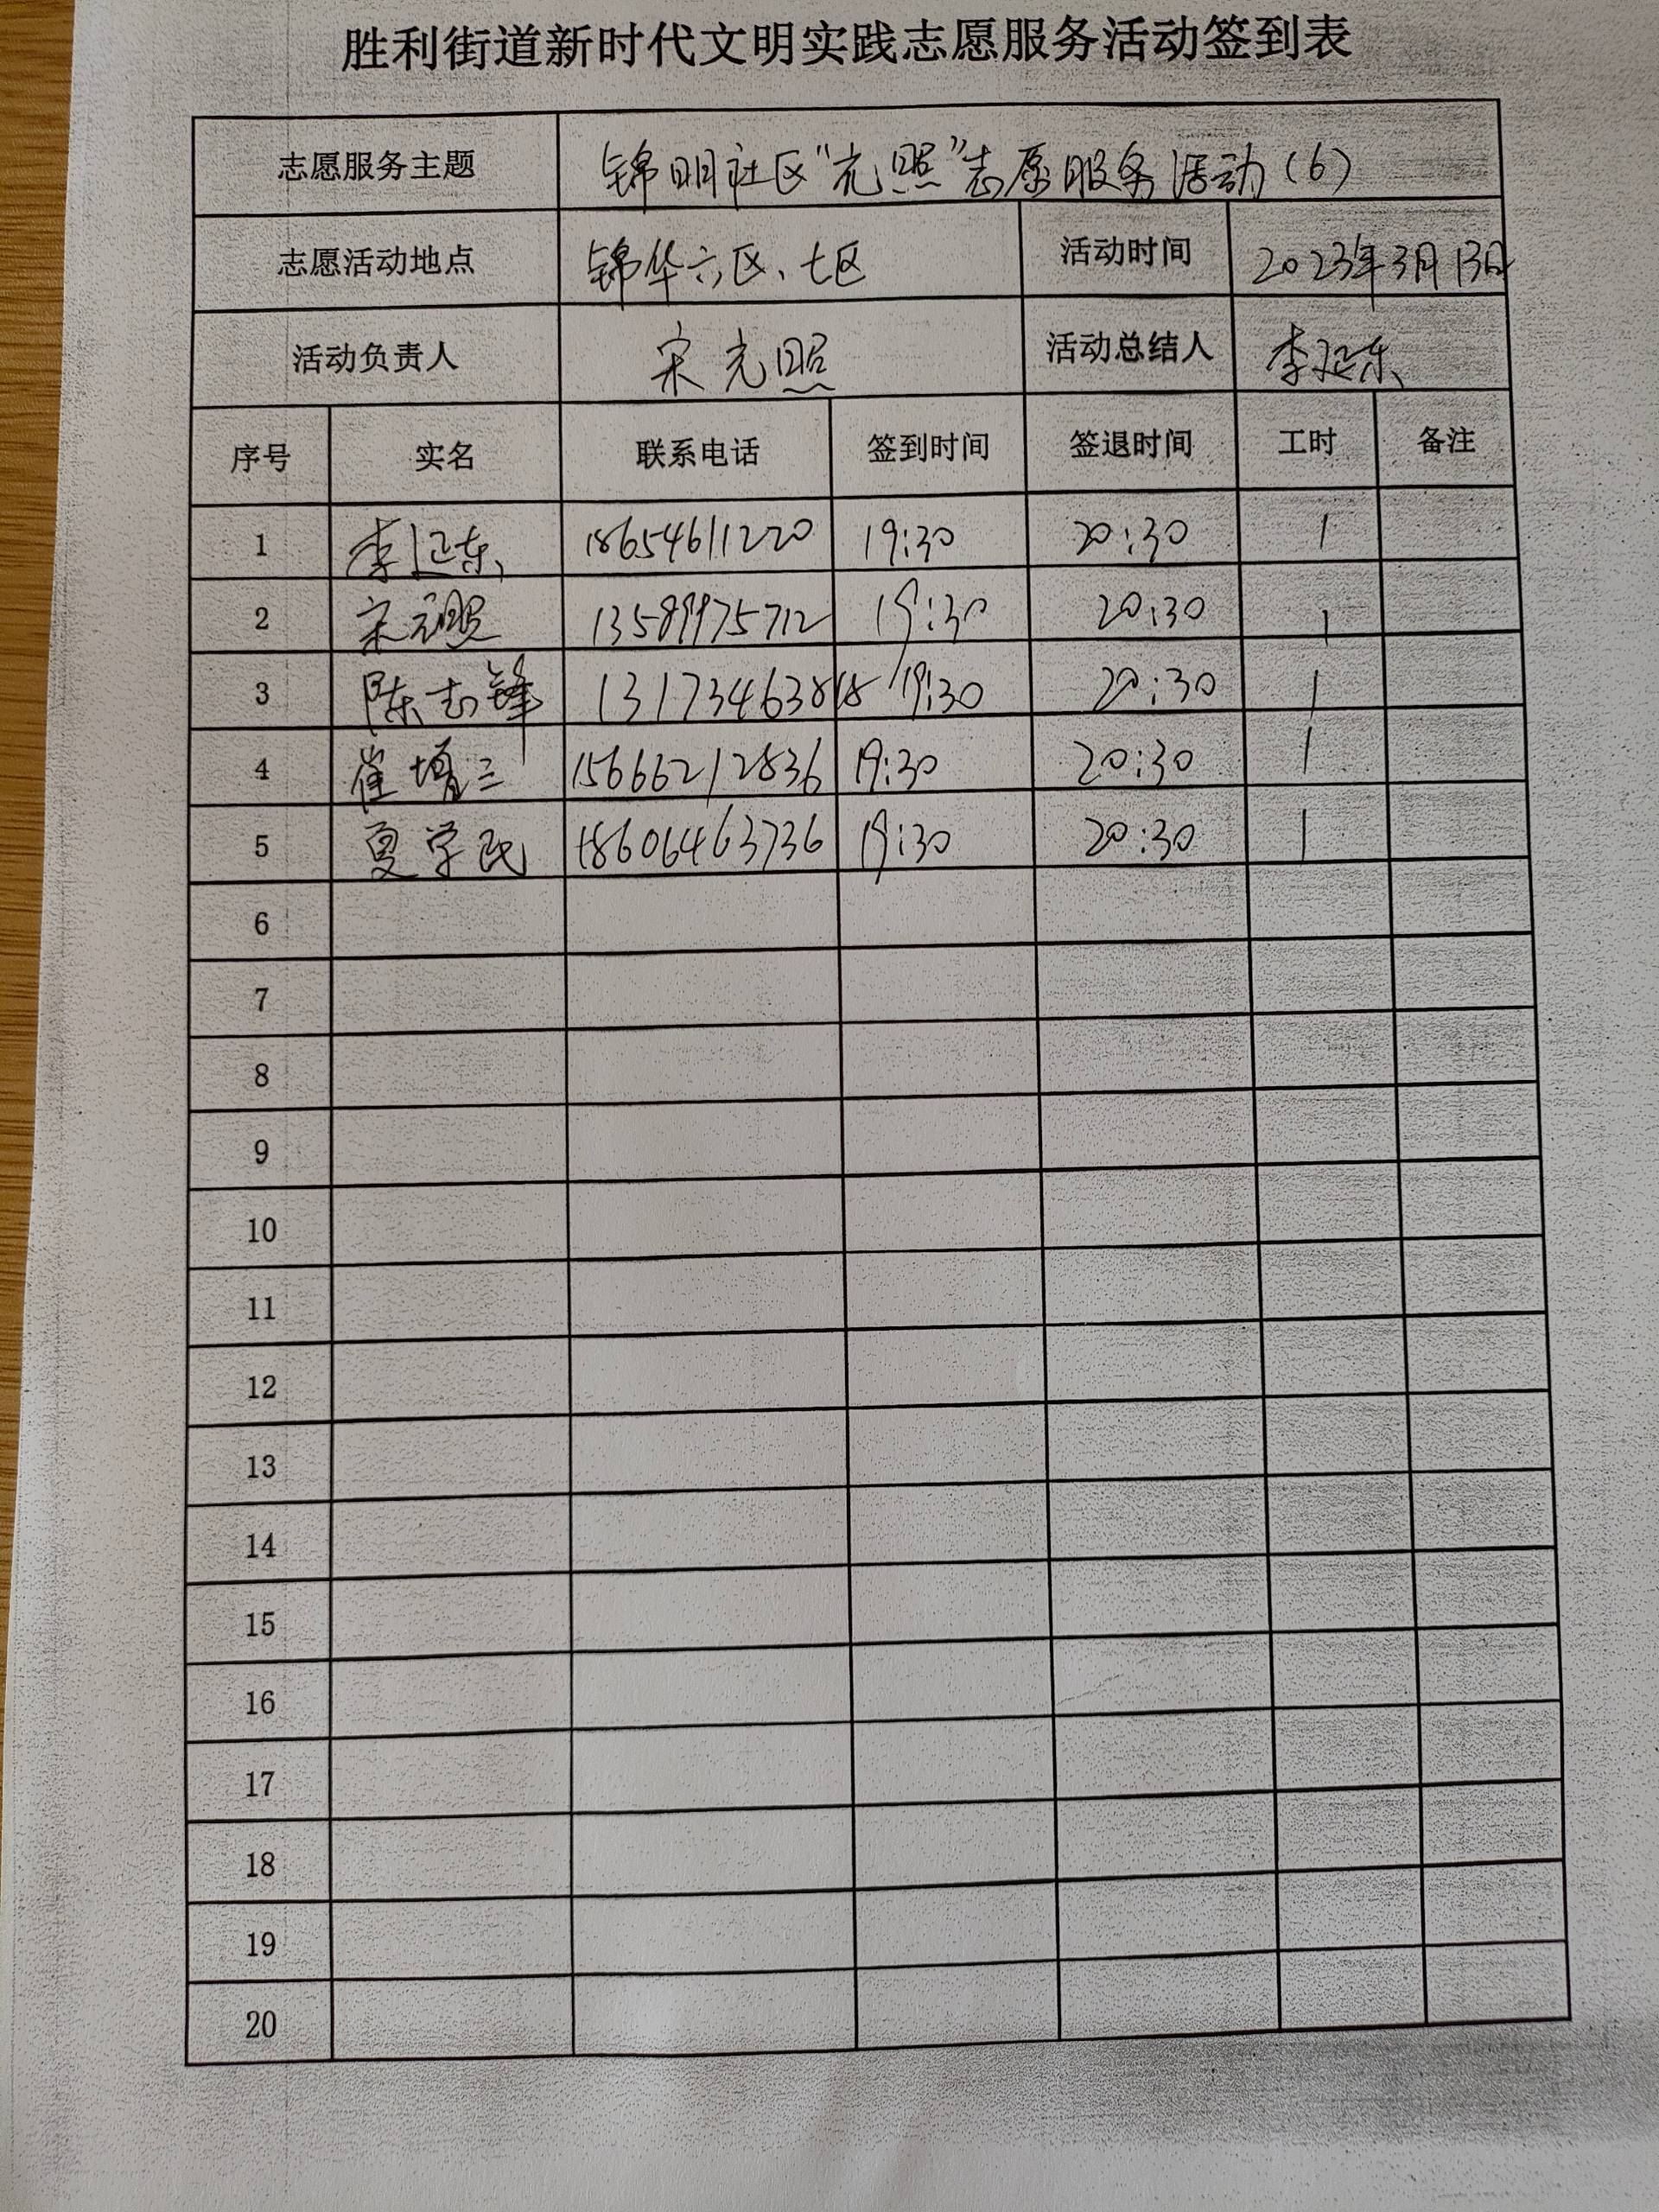 胜利街道新时代文明实践志愿服务活动签到表
志愿服务主题 锦明社区“光照”志愿服务活动(6)
志愿活动地点 锦华六区、七区 活动时间 2023年3月13日
活动负责人 宋光照 活动总结人 李延东
序号 实名 联系电话 签到时间 签退时间 工时 备注
1 李延东 18654611220 19:30 20:30 1
2 宋光照 13589975712 19:30 20:30 1
3 陈志锋 19:30 20:30 1
4 崔增三 15666212836 19:30 20:30 1
5 夏学民 18606463736 19:30 20:30 1
6
7
8
9
10
11
12
13
14
15
16
17
18
19
20